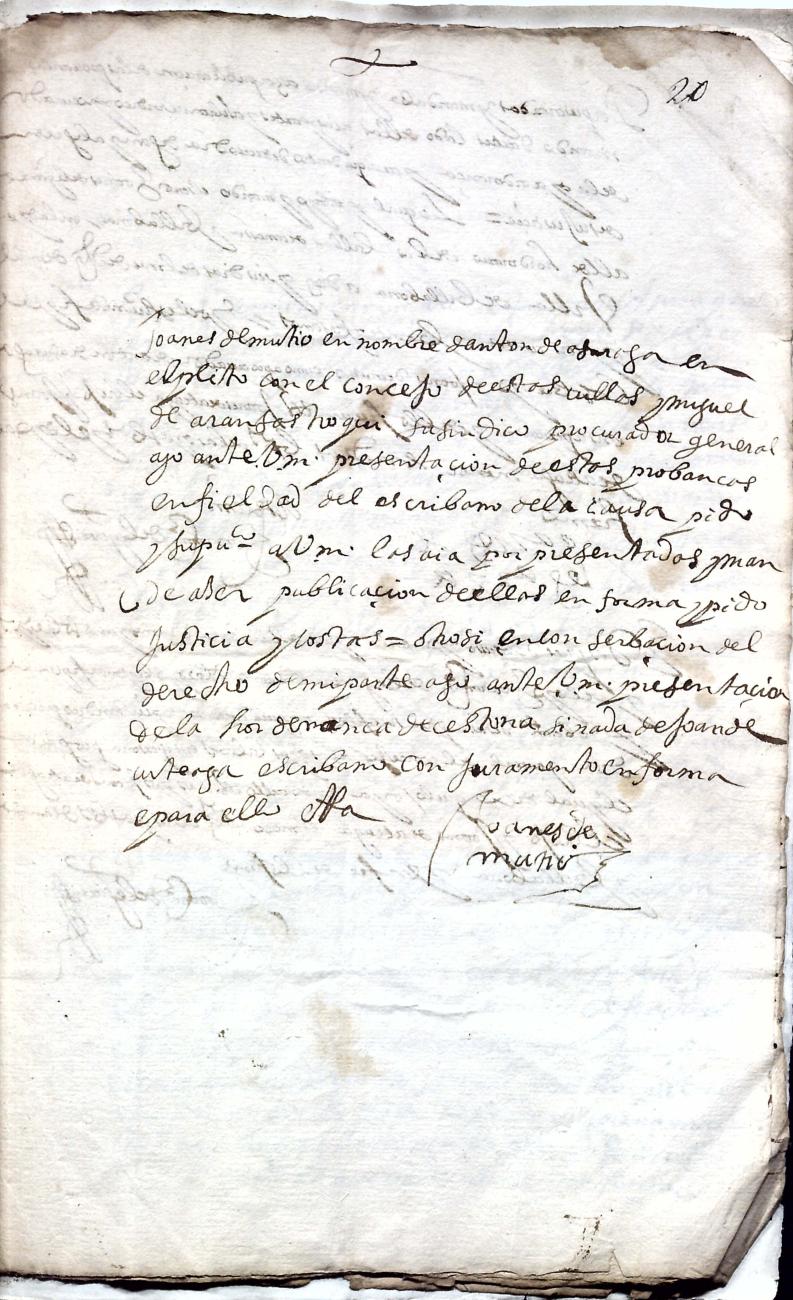 20
Joanes de mutio en nombre de anton de en
el plito con el concejo de estas villas y miguel
de su sindico procurador general
ago ante Vm. presentacion de estas probancas
en fieldad del escribano de la causa pido
y supuco a Vm. las aia por presentadas y man
de aser publicacion de ellas en forma y pido
Justicia y costas = otrosi en con serbacion del
derecho de mi parte ago ante Vm. presentacion
de la hordenanca de cestona sinada de Joan de
arteaga escribano con Juramento en forma
e para ello etta
Joanes de
mutio